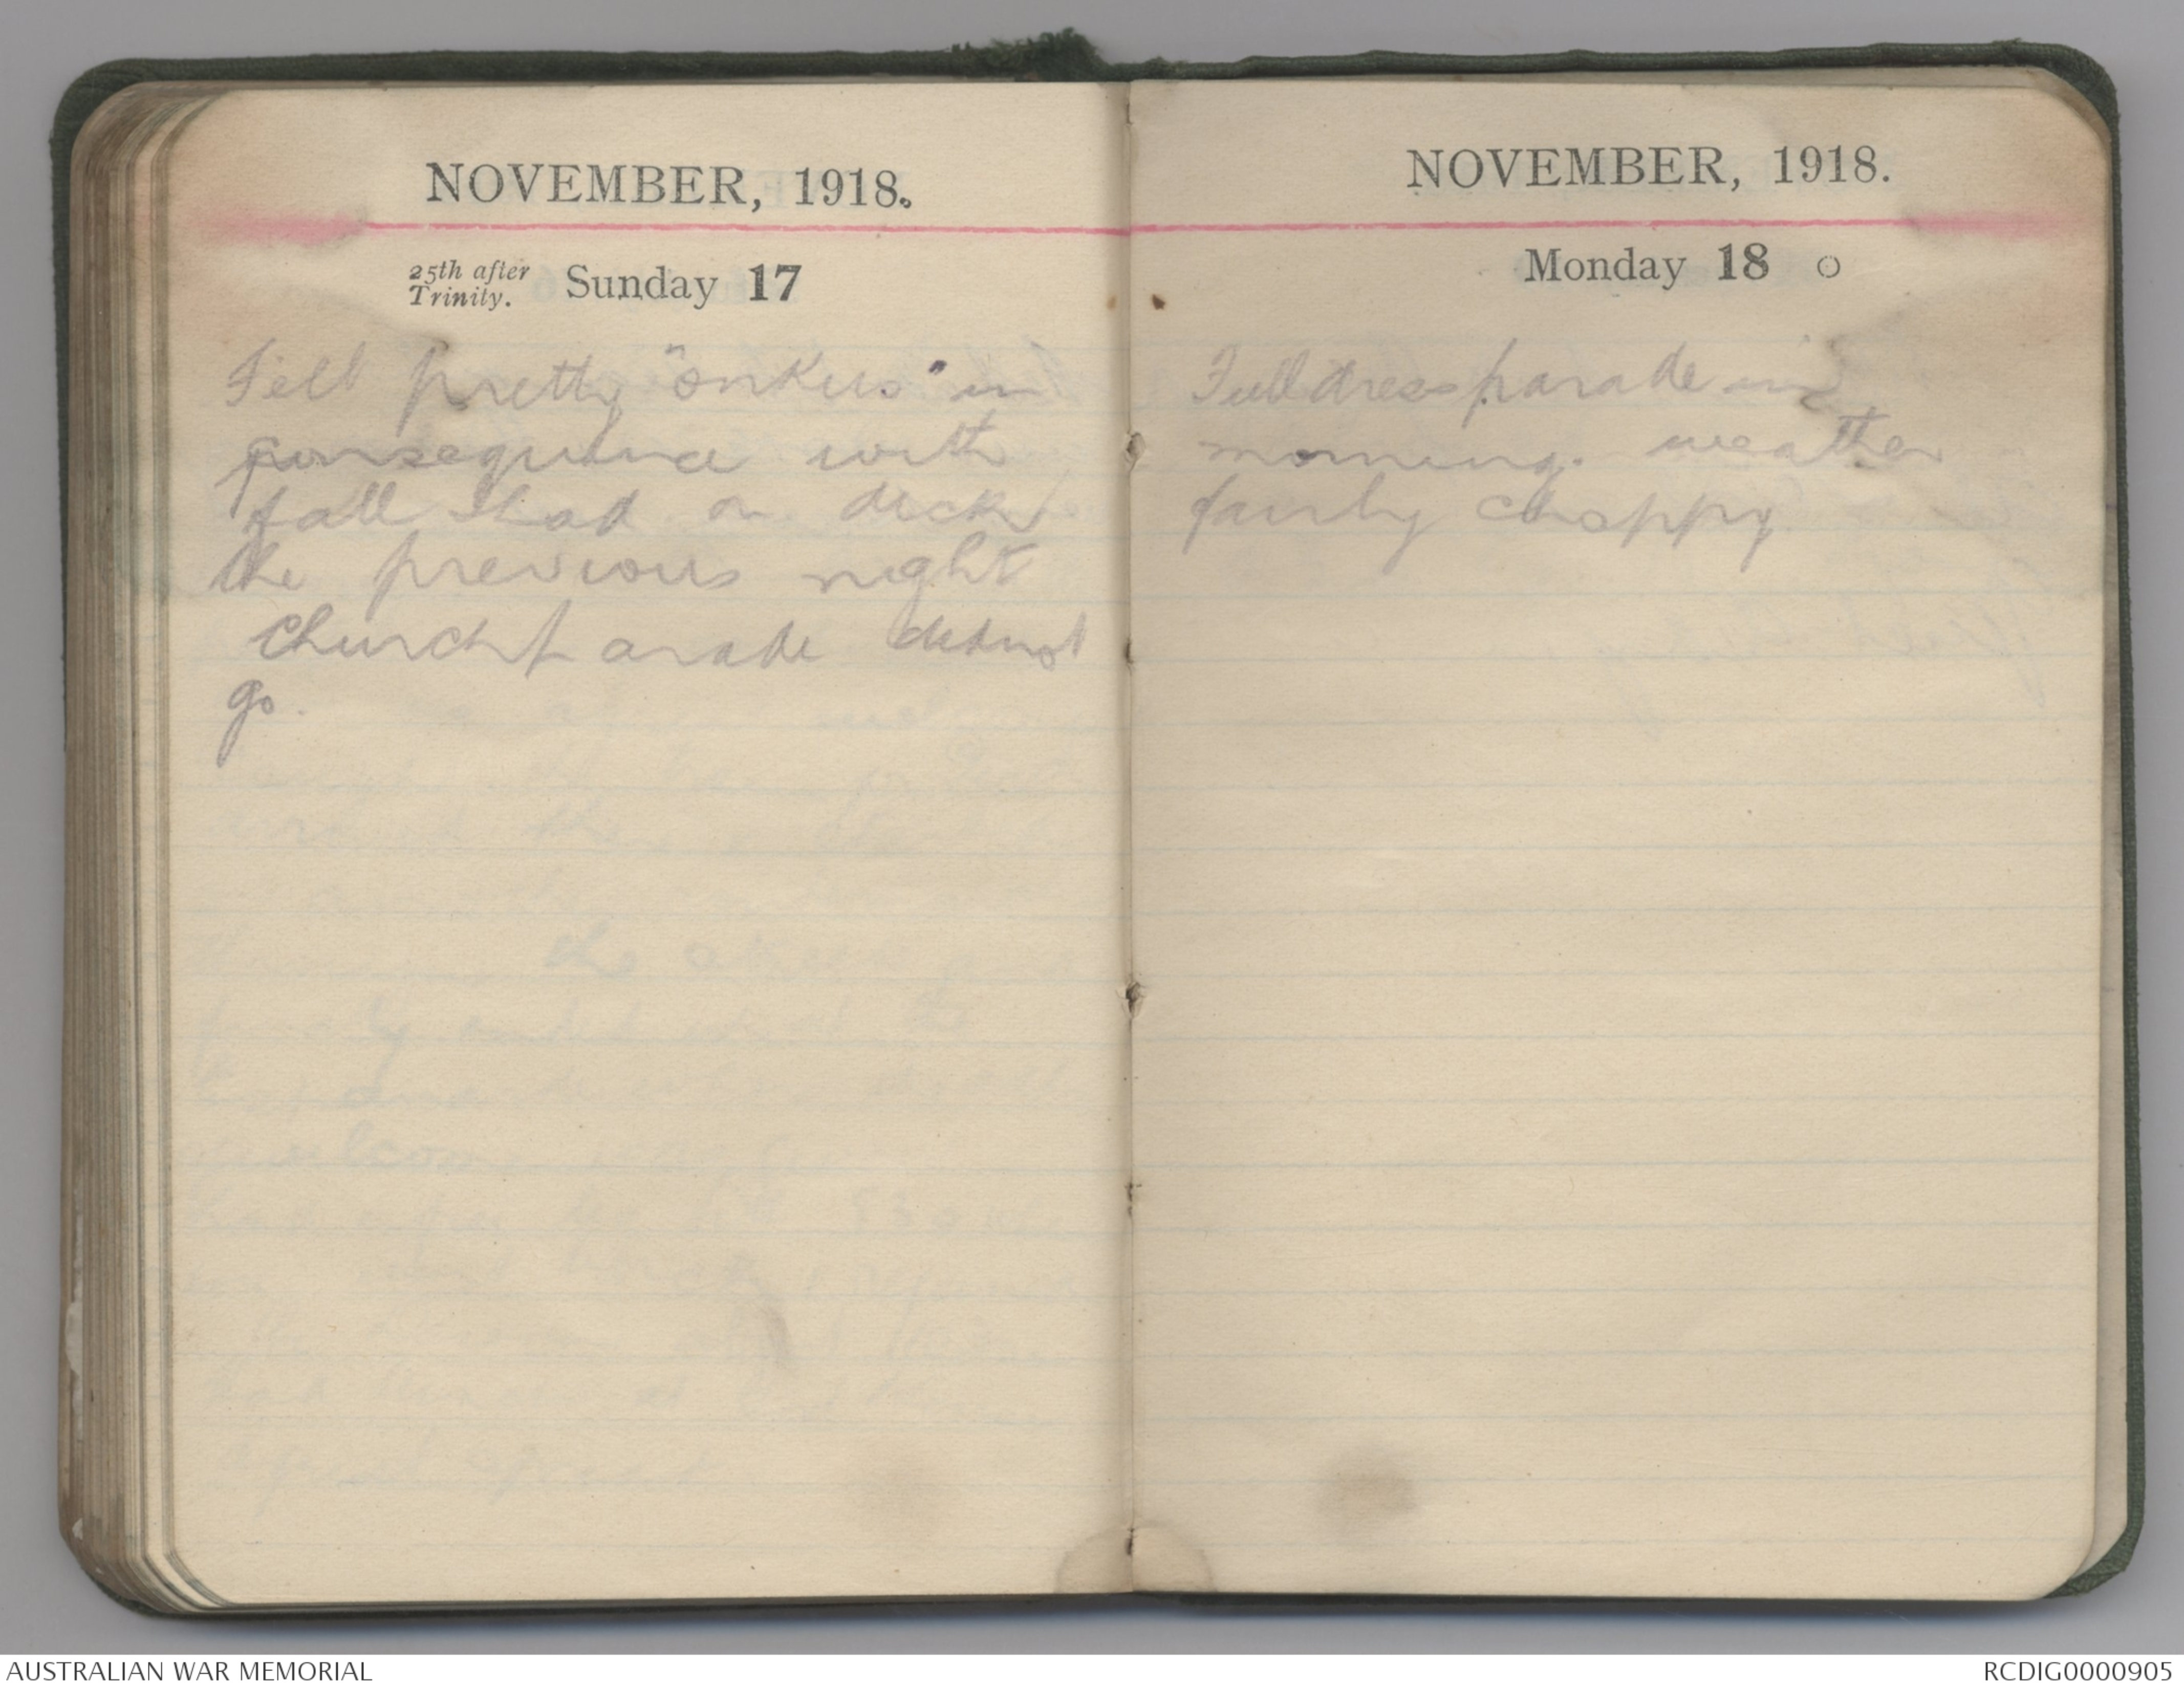 NOVEMBER, 1918.
25th after
Trinity. Sunday 17
Felt pretty "onkus" in
consequence with
fall I had on deck
the previous night
Church parade did not
go.
NOVEMBER, 1918.
Monday 18 ○
Full dress parade in
morning. weather
fairly choppy
AUSTRALIAN WAR MEMORIAL
RCDIG0000905